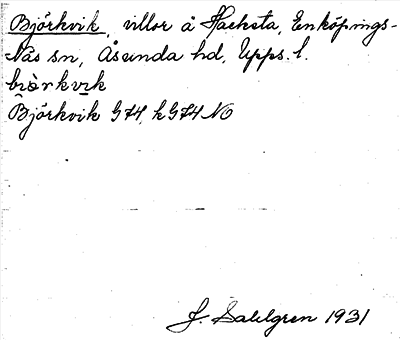 Björkvik, villor å Hacksta, Enköpings-
Näs sn, Åsunda hd, Upps. l.
bjö̀rkvik
Björkvik G74, kG74 NO
J. Sahlgren 1931